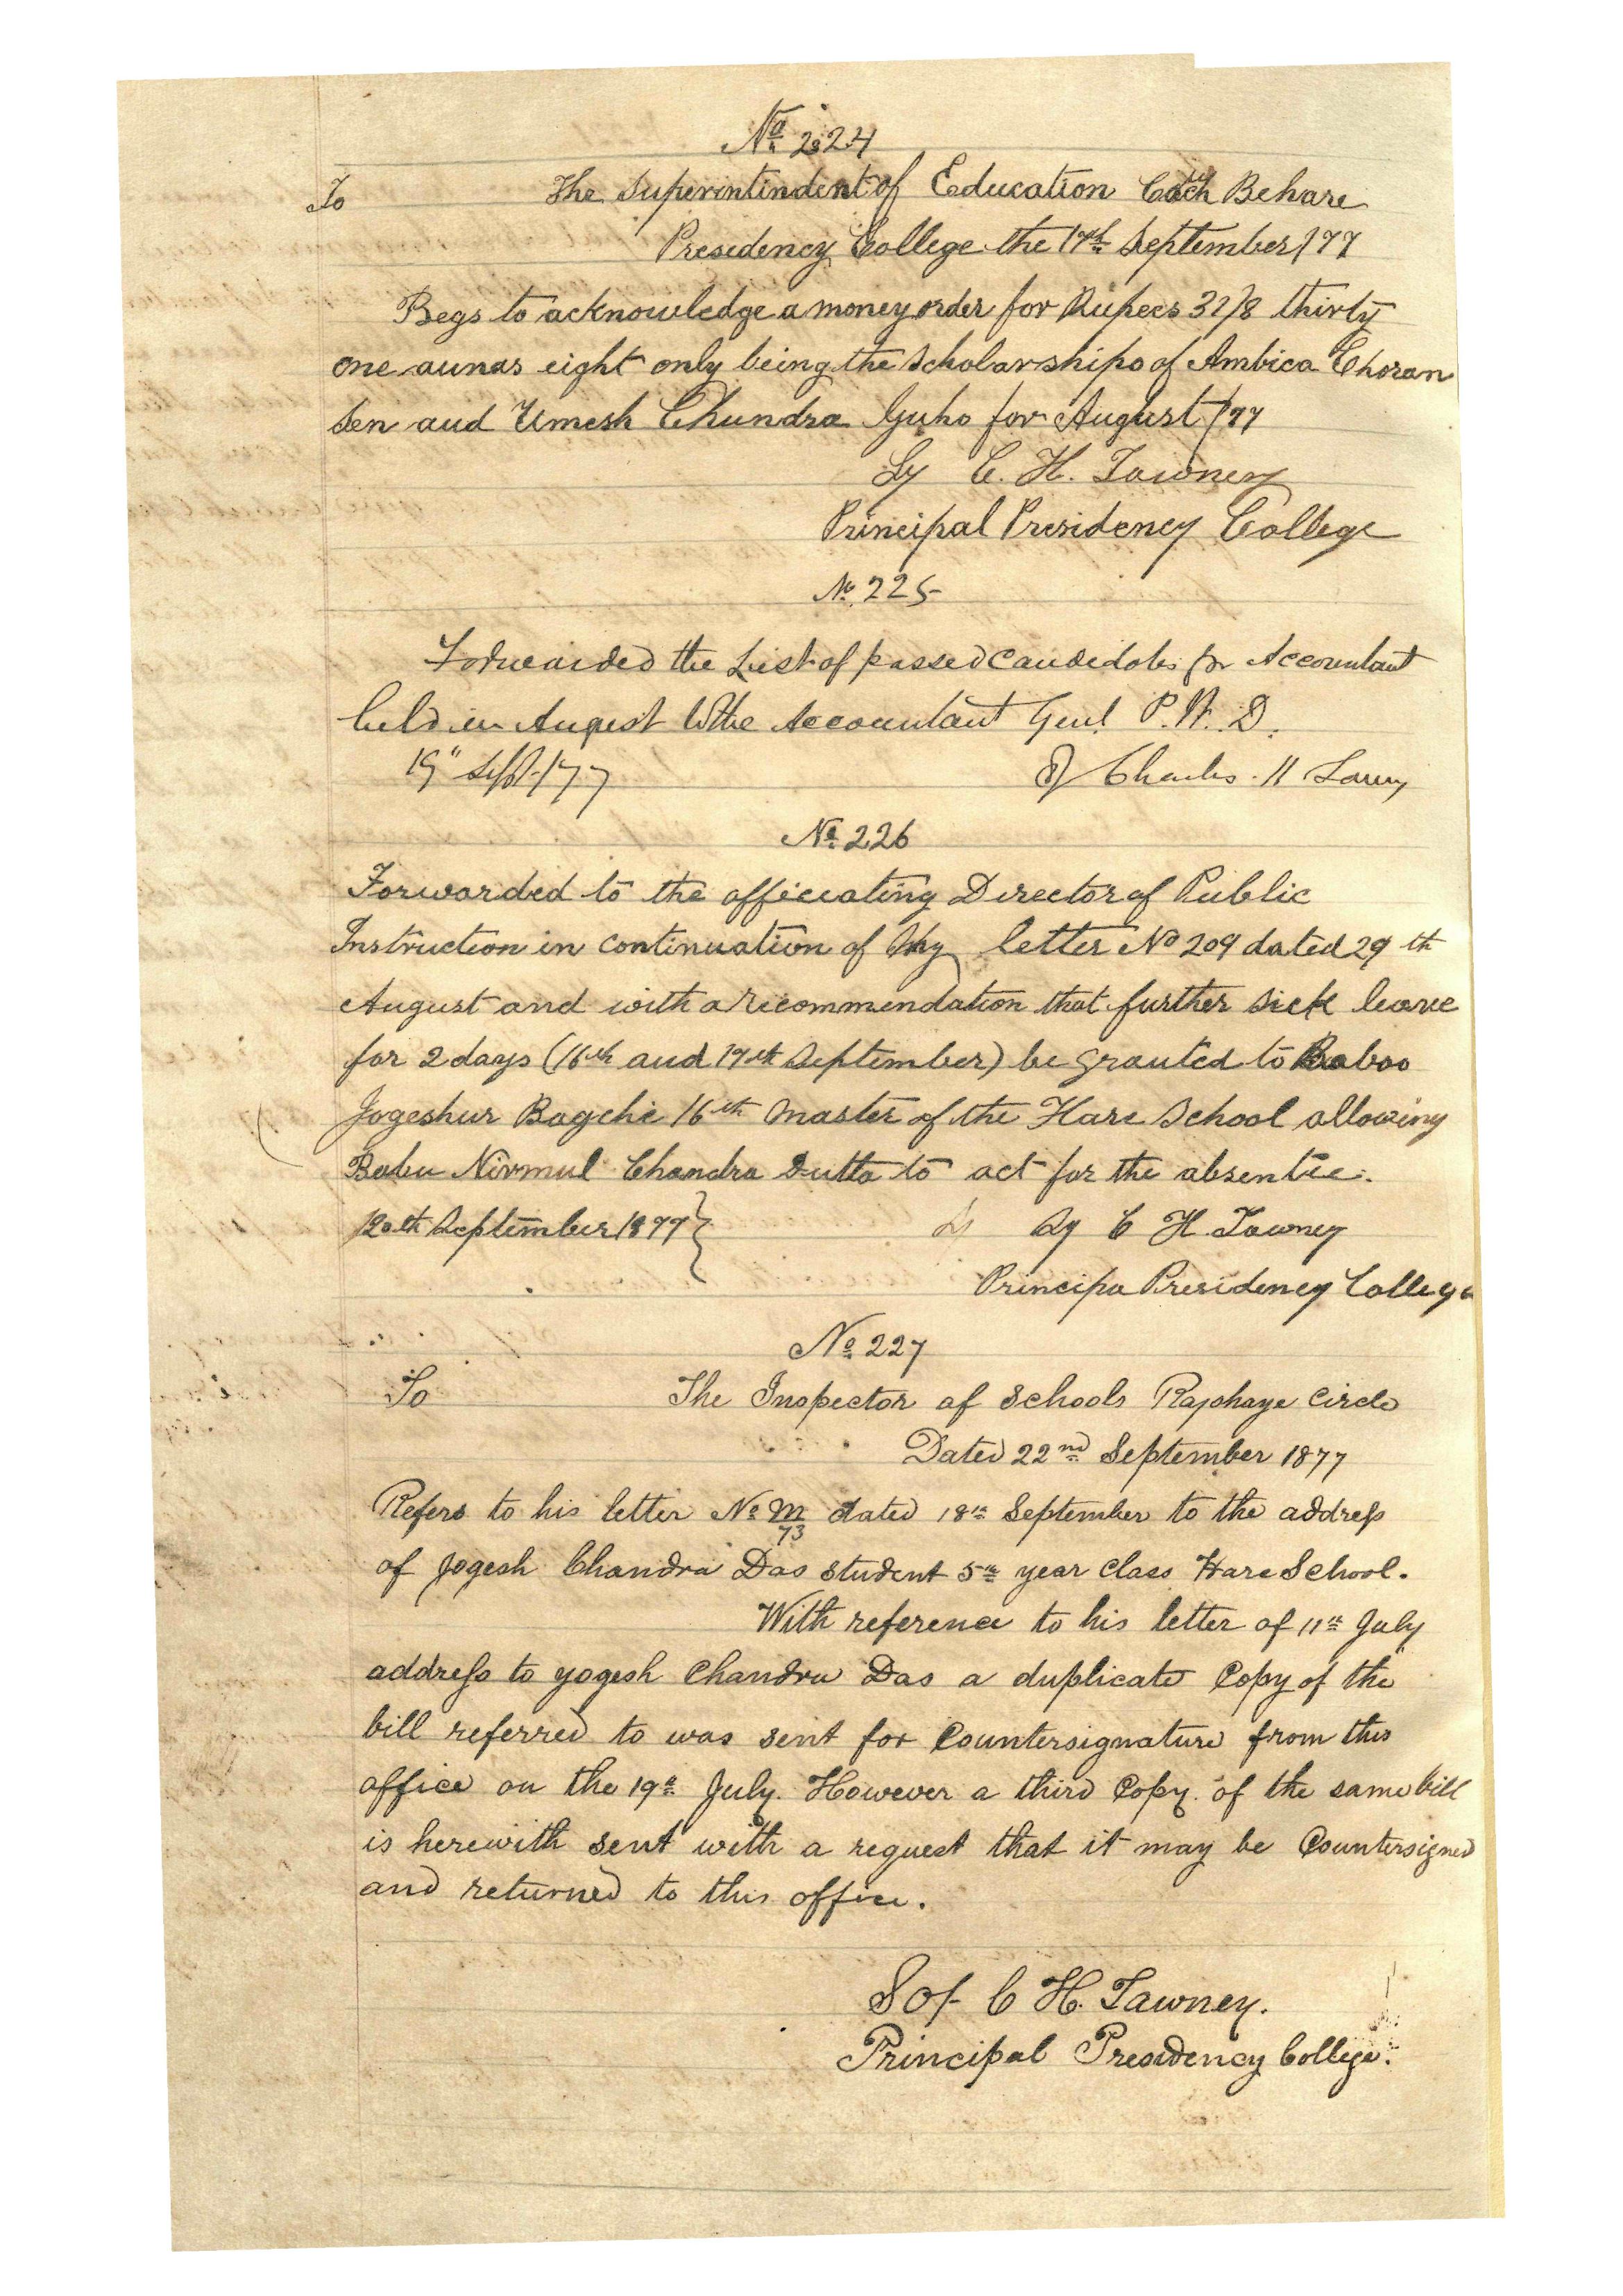 No 224
To The Superintindent of Education Coch Behare
Presedency College the 17th September/77
Begs to acknowledge a money order for Rupees 31/8 thirty
one aunas eight only being the scholarships of Ambica Choran
Sen and Umesh Chundra Guho for August/77
Sy C. H. Tawney
Principal Presidency College
No 225
Forwarded the List of passed candidates for Accountant
held in August to the Accountant Genl P. W. D.
19" Sept/77 Charles H Tawney
No 226
Forwarded to the officiating Director of Public
Instruction in continuation of My letter No 209 dated 29th
August and with a recommendation that further sick leave
for 2 days (16th and 17th September) be granted to Baboo
Jogeshur Bagchi 16th master of the Hare School allowing
Babu Nirmul Chandra Dutta to act for the absentee.
20th September 1877 Sy C H. Tawney
Principa Presidency College
No 227
To The Inspector of Schools Rajshaye Circle
Dated 22nd September 1877
Refers to his letter No M/73 dated 18th September to the address
of Jogesh Chandra Das student 5th year class Hare School.
With reference to his letter of 11th July
address to yogesh Chandra Das a duplicate Copy of the
bill referred to was sent for Countersignature from this
office on the 19th July. However a third Copy of the same bill
is herewith sent with a request that it may be Countersigned
and returned to this office.
Sd/- C H. Tawney.
Principal Presidency College.